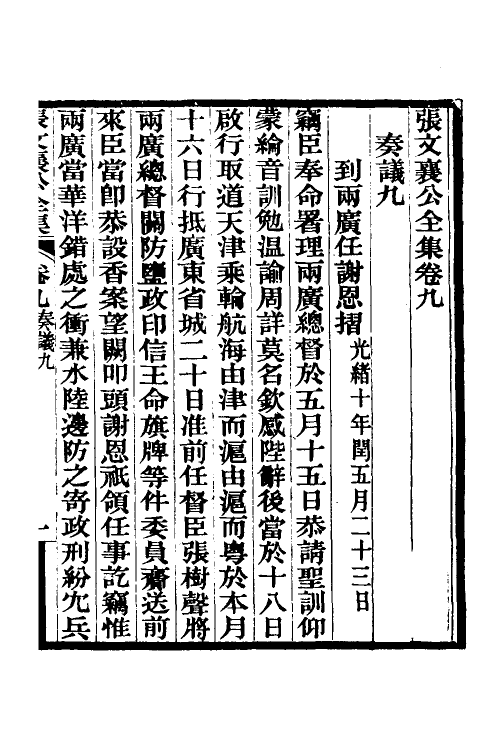 張文襄公全集卷九
奏議九
到兩廣任謝恩摺光緒十年閏五月二十三日
竊臣奉命署理兩廣總督於五月十五日恭請聖訓仰
蒙綸音訓勉溫諭周詳莫名欽感陛辭後當於十八日
啟行取道天津乘輪航海由津而滬由滬而粵於本月
十六日行抵廣東省城二十日准前任督臣張樹聲將
兩廣總督關防鹽政印信王命旗牌等件委員齎送前
來臣當卽恭設香案望闕叩頭謝恩祇領任事訖竊惟
兩廣當華洋錯處之衝兼水陸邊防之寄政刑紛冗兵
張文襄公全集 卷九奏議九 一